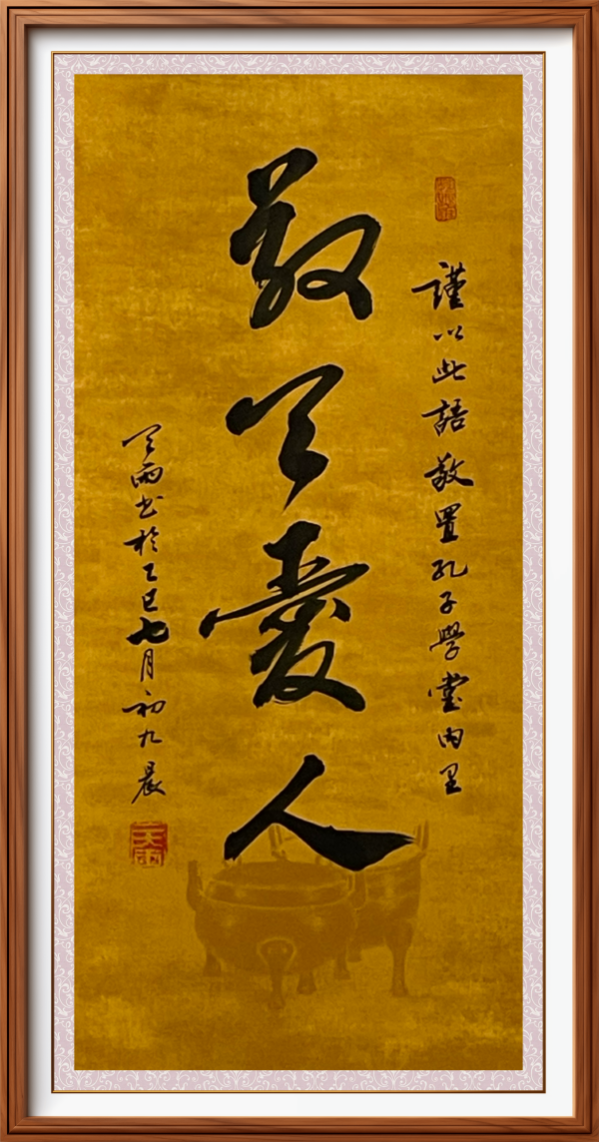 謹以此語敬置孔子學堂内里
敬天愛人
天雨书於乙巳七月初九晨
天雨